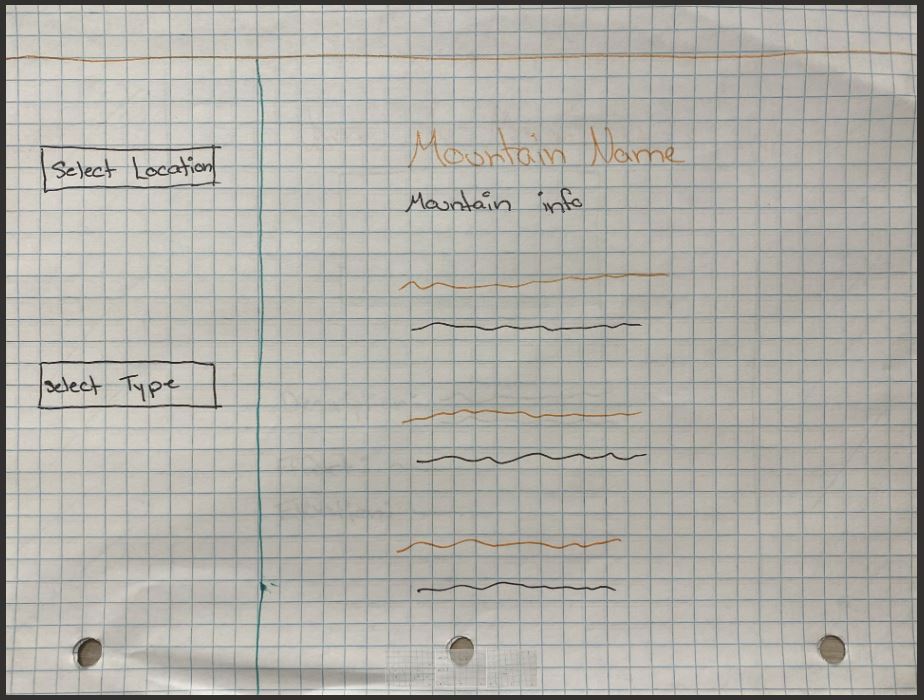 Select Location
select Type
Mountain Name
Mountain info